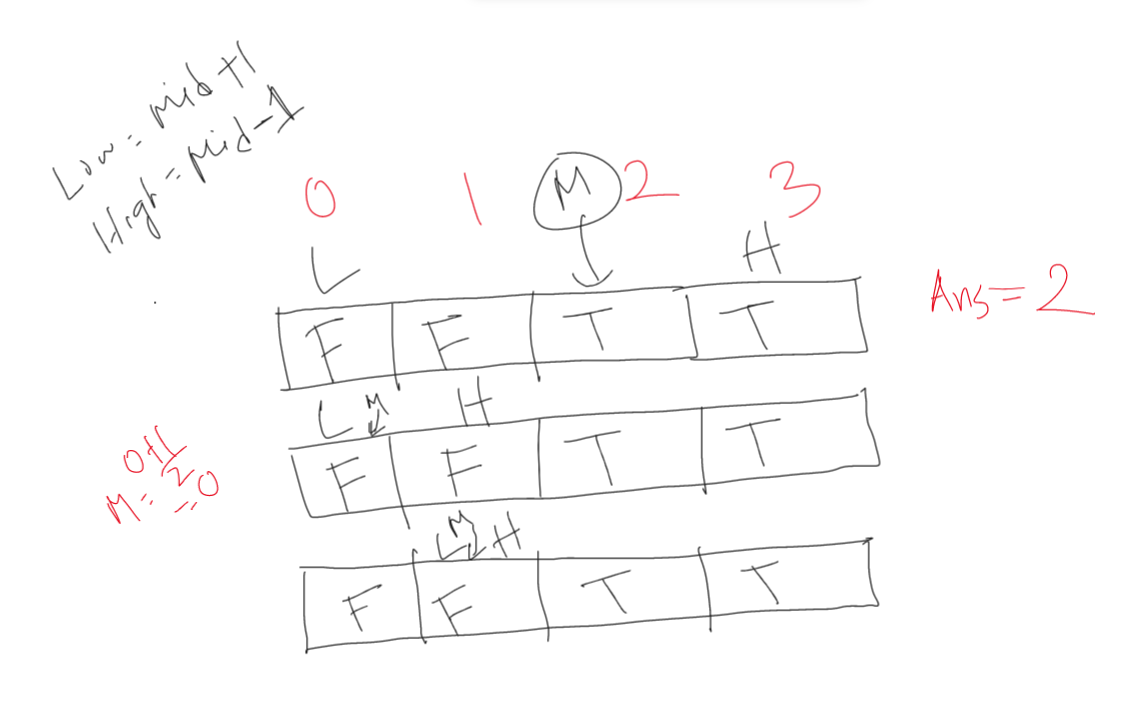 Low = mid+1
High = Mid-1
0 1 M 2 3
L H
F F T T
Ans = 2
L M H
F F T T
0+1
M = 2
= 0
L M H
F F T T